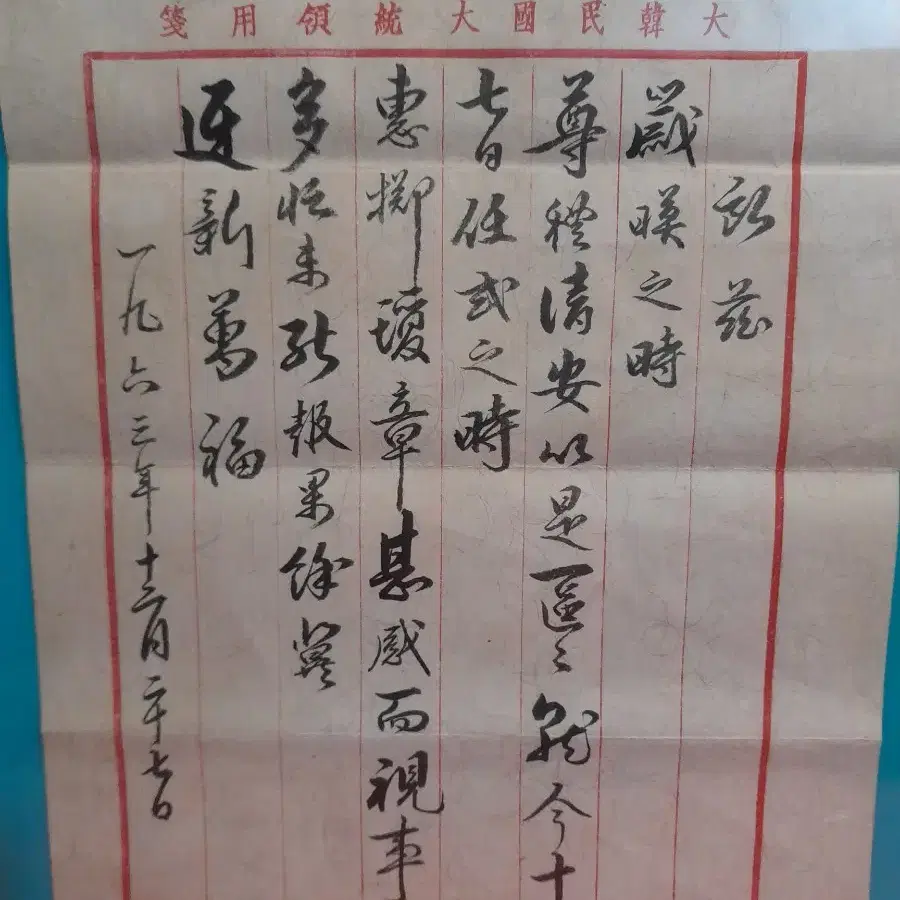 大韓民國大統領用箋
茲
歲暎之時
尊體清安以是區々就今十
七日任式之時
惠擲瓊章甚感而視事
多忙未能報果餘冀
迓新萬福
一九六三年十二月二十七日